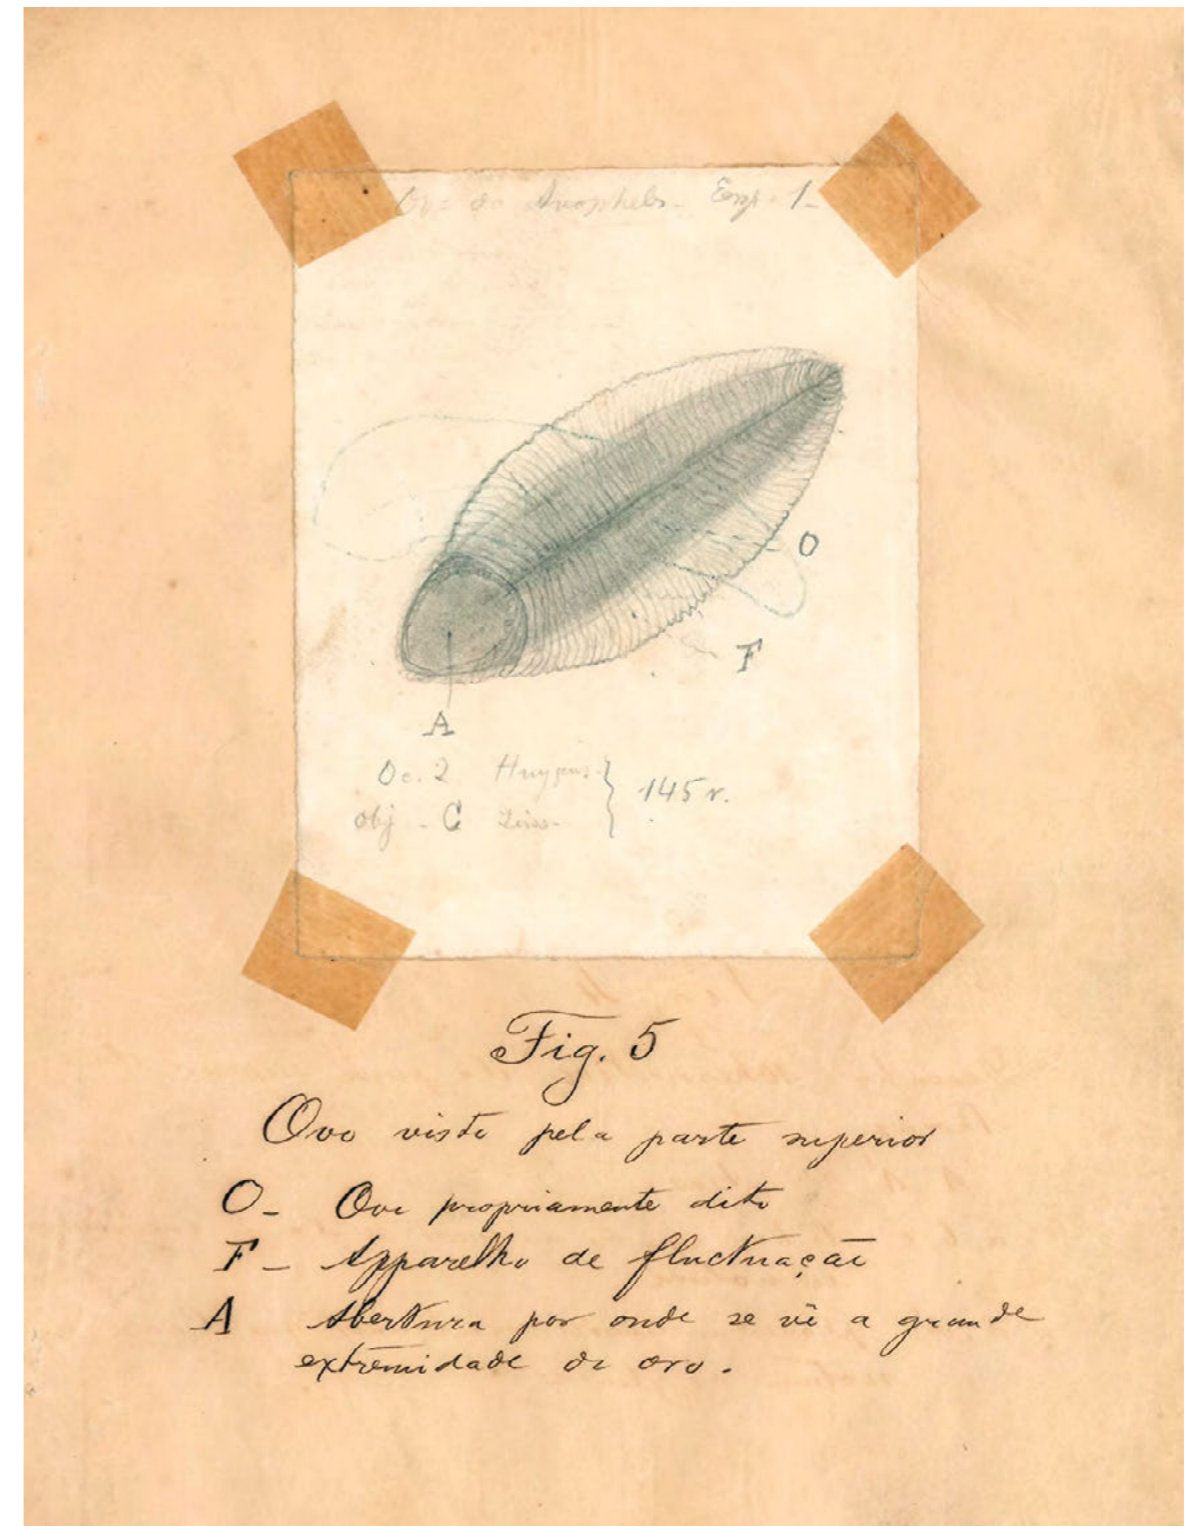 Ovo do Anopheles - Esp. 1-
O
F
A
Oc. 2 Huygens
obj - C Zeiss-
145 r.
Fig. 5
Ovo visto pela parte superior
O- Ovo propriamente dito
F- Apparelho de fluctuação
A Abertura por onde se vê a grande
extremidade do ovo.